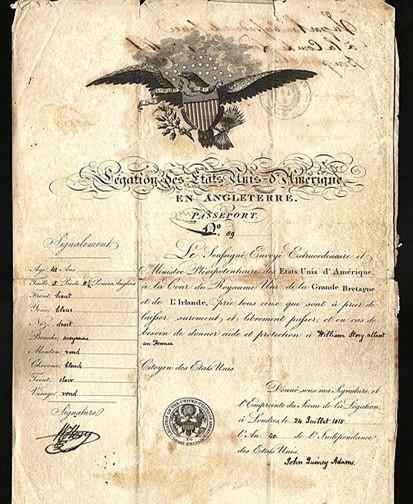 Légation des Etats Unis d'Amérique
EN ANGLETERRE.
PASSEPORT.
Nº 89
Signalement
Age
Taille 5 Pieds Pouces Anglais
Front haut
Yeux bleus
Nez droit
Bouche moyenne
Menton rond
Cheveux blonds
Teint clair
Visage rond
Signature
Le Soussigné Envoyé Extraordinaire et
Ministre Plénipotentiaire des Etats Unis d'Amérique,
à la Cour du Royaume Uni de la Grande Bretagne
et de L'Irlande, prie tous ceux qui sont à prier de
laisser surement et librement passer, et en cas de
besoin de donner aide et protection à William Story allant
en France
Citoyen des Etats Unis
Donné sous ma Signature, et
l'Empreinte du Sceau de la Légation,
à Londres, le 24 Juillet 1815
l'An 40 de l'Indépendance
des Etats Unis.
John Quincy Adams.